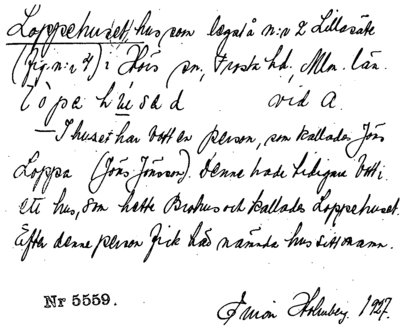 Loppehuset, hus som legat å n:r 2 Lillasäte
(fig. n:r 2) i Hörs sn, Frosta hd, Mlm. län.
lòpəhúsəd vid A.
— I huset har bott en person, som kallades Jöns
Loppa (Jöns Jönsson). Denne hade tidigare bott i
ett hus, som hette Brohus och kallades Loppehuset.
Efter denne person fick här nämnda hus sitt namn.
Nr 5559.
Holmberg. 1927.